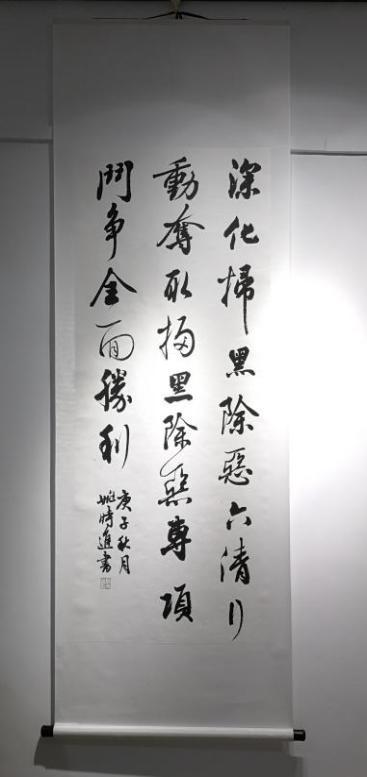 深化掃黑除惡六清行
動奪取掃黑除惡專項
鬥争全面勝利
庚子秋月
姚時進書